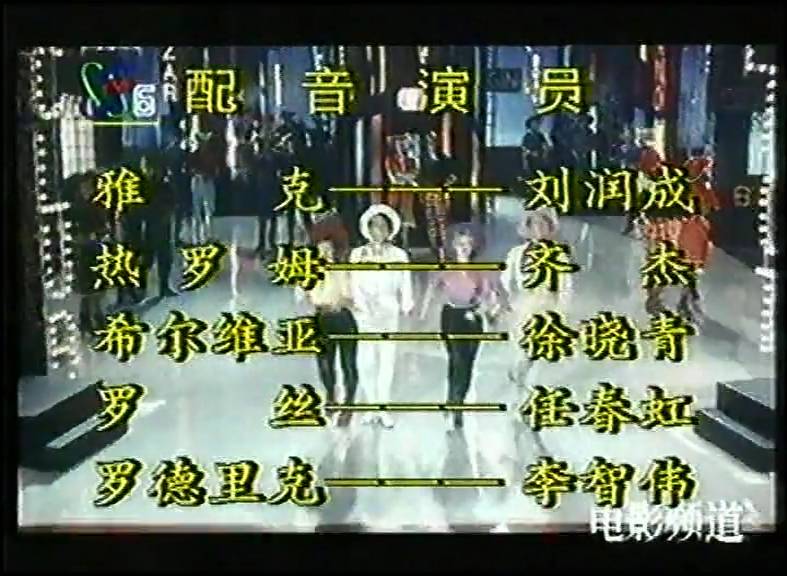 6
配音演员
雅克——刘润成
热罗姆——齐杰
希尔维亚——徐晓青
罗丝——任春虹
罗德里克——李智伟
电影频道